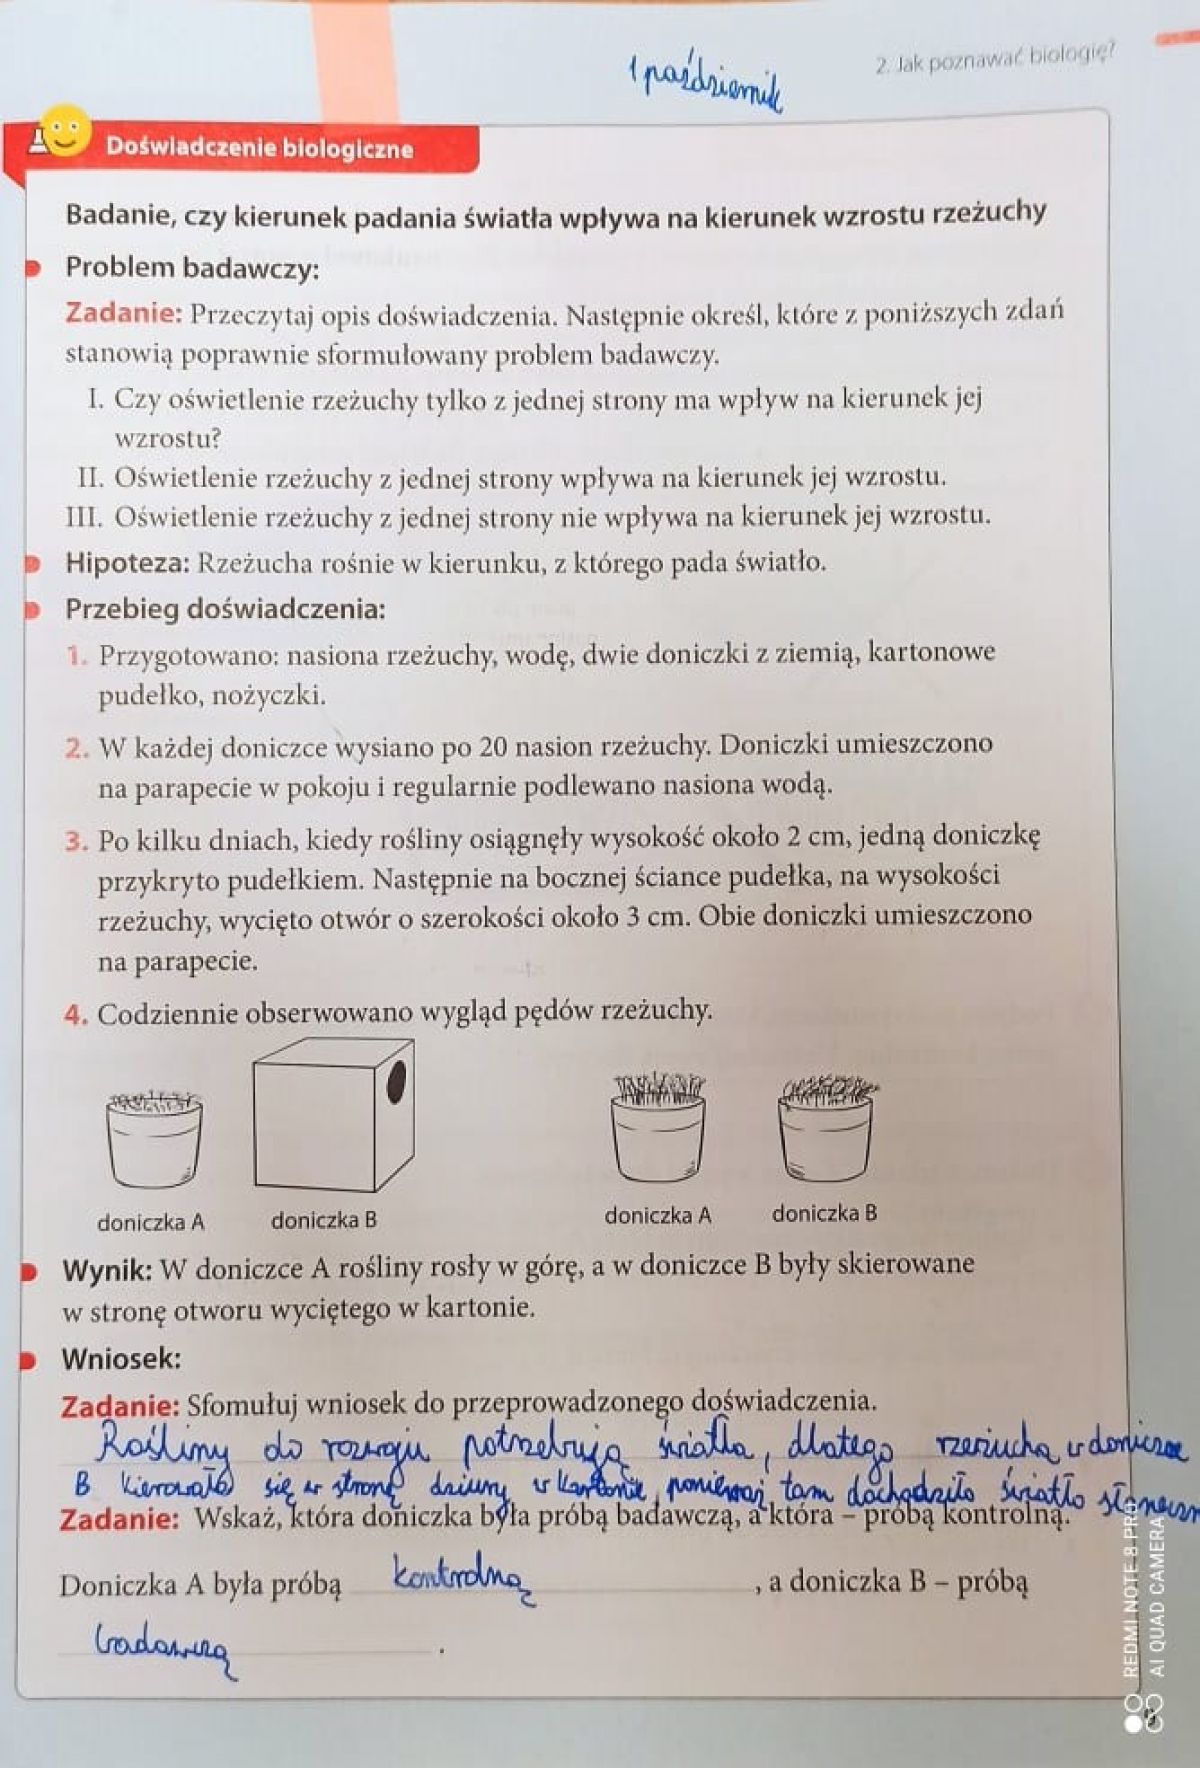 1 październik
2. Jak poznawać biologię?
Doświadczenie biologiczne
Badanie, czy kierunek padania światła wpływa na kierunek wzrostu rzeżuchy
Problem badawczy:
Zadanie: Przeczytaj opis doświadczenia. Następnie określ, które z poniższych zdań
stanowią poprawnie sformułowany problem badawczy.
I. Czy oświetlenie rzeżuchy tylko z jednej strony ma wpływ na kierunek jej
wzrostu?
II. Oświetlenie rzeżuchy z jednej strony wpływa na kierunek jej wzrostu.
III. Oświetlenie rzeżuchy z jednej strony nie wpływa na kierunek jej wzrostu.
Hipoteza: Rzeżucha rośnie w kierunku, z którego pada światło.
Przebieg doświadczenia:
1. Przygotowano: nasiona rzeżuchy, wodę, dwie doniczki z ziemią, kartonowe
pudełko, nożyczki.
2. W każdej doniczce wysiano po 20 nasion rzeżuchy. Doniczki umieszczono
na parapecie w pokoju i regularnie podlewano nasiona wodą.
3. Po kilku dniach, kiedy rośliny osiągnęły wysokość około 2 cm, jedną doniczkę
przykryto pudełkiem. Następnie na bocznej ściance pudełka, na wysokości
rzeżuchy, wycięto otwór o szerokości około 3 cm. Obie doniczki umieszczono
na parapecie.
4. Codziennie obserwowano wygląd pędów rzeżuchy.
doniczka A doniczka B doniczka A doniczka B
Wynik: W doniczce A rośliny rosły w górę, a w doniczce B były skierowane
w stronę otworu wyciętego w kartonie.
Wniosek:
Zadanie: Sfomułuj wniosek do przeprowadzonego doświadczenia.
Rośliny do rozwoju potrzebują światła, dlatego rzeżucha w doniczce
B kierowała się w stronę dziury w kartonie, ponieważ tam dochodziło światło
Zadanie: Wskaż, która doniczka była próbą badawczą, a która – próbą kontrolną.
Doniczka A była próbą kontrolną , a doniczka B – próbą
badawczą .
REDMI NOTE 8 PRO
AI QUAD CAMERA
9